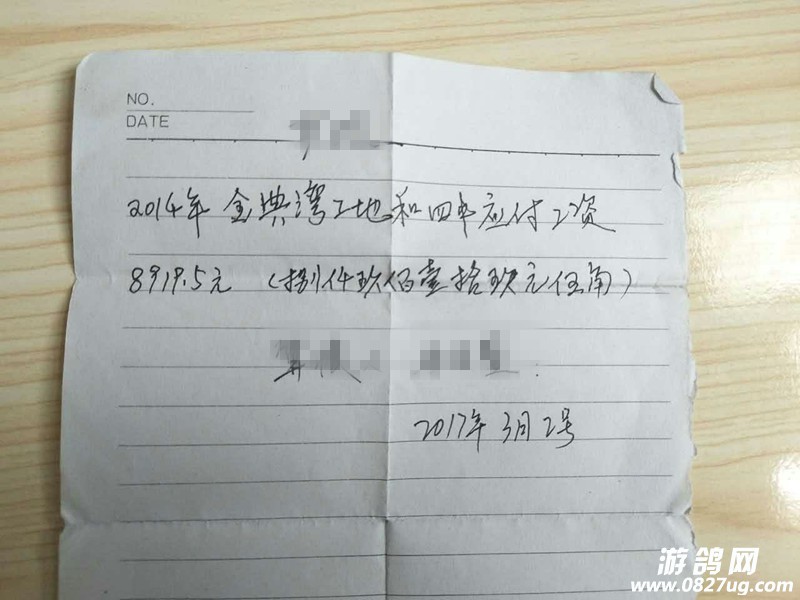 NO.
DATE
2014年金典湾工地和四中应付工资
8919.5元（捌仟玖佰壹拾玖元伍角）
2017年3月2号
游鸽网
www.0827ug.com